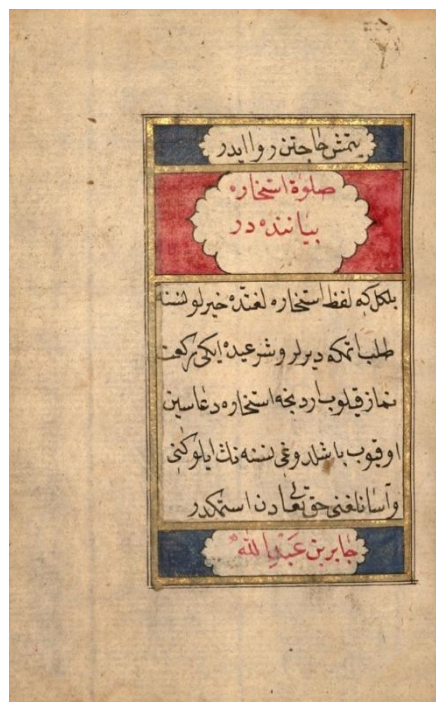 یتمش حاجتن روا ایدر
صلوة استخاره
بیاننده در
بلكل كه لفظ استخاره لغتده خیرلو نسنه
طلب اتمكه دیرلر و شرعیده ایكی ركعت
نماز قیلوب اردنجه استخاره دعاسین
اوقوب باشلدوغی نسنه نك ایلوكنی
و آسانلغنی حق تعالی دن استمكدر
جابر بن عبد الله